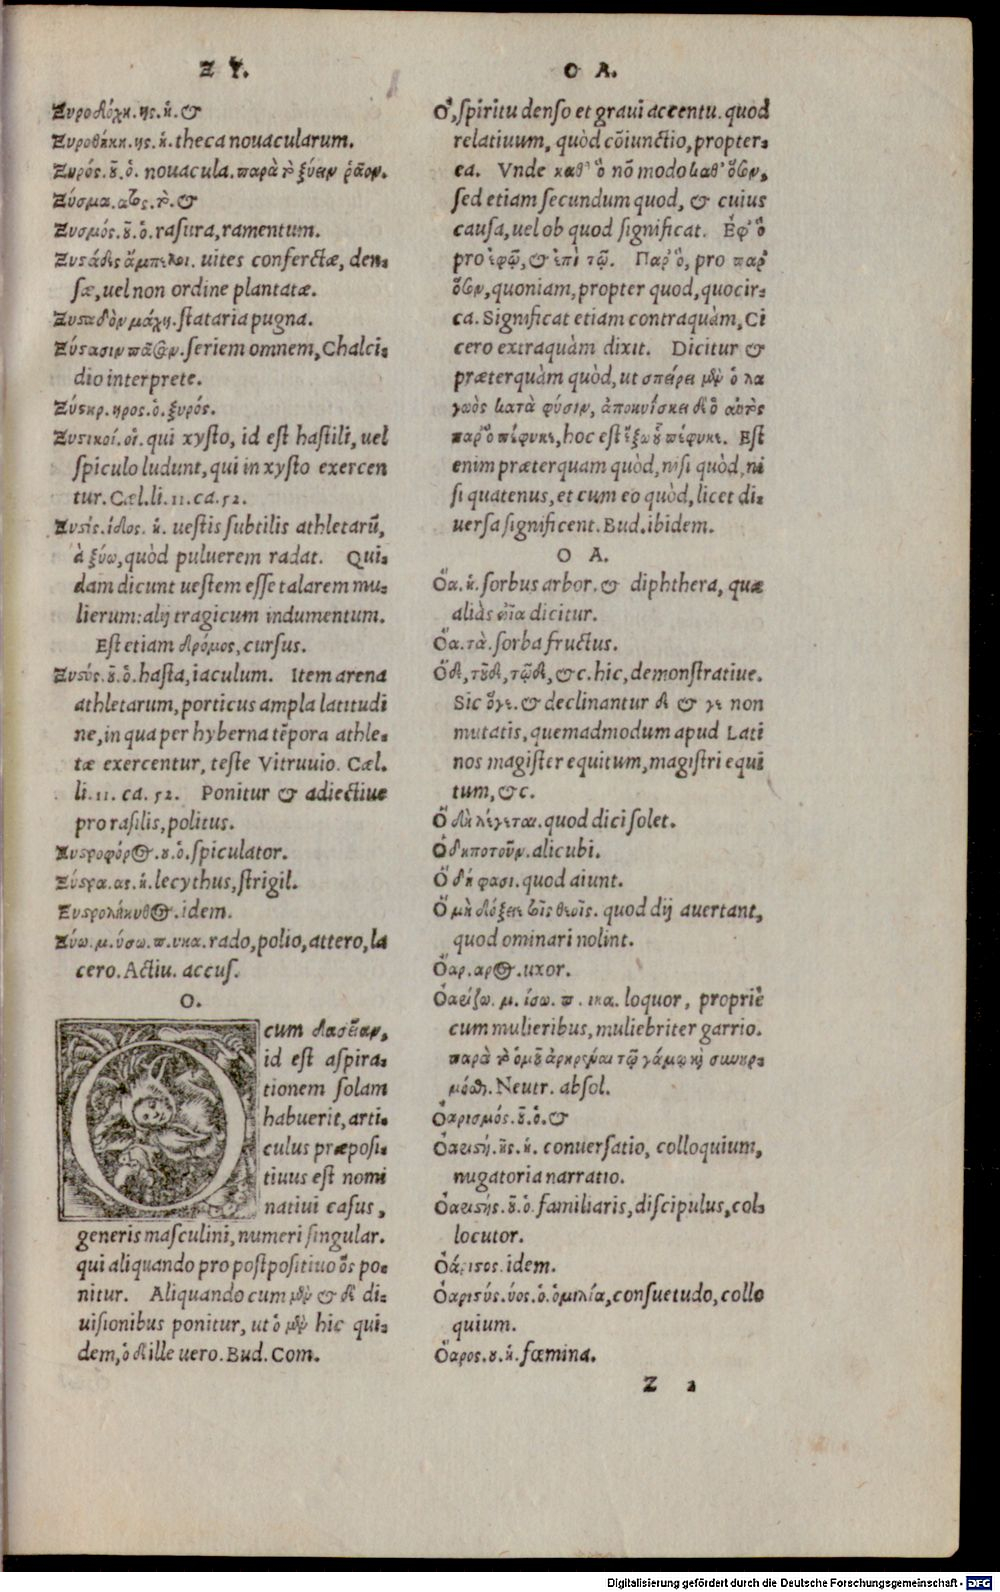 Ξ Υ.
Ξυροδόχη. ης. ἡ. &
Ξυροθήκη. ης. ἡ. theca nouacularum.
Ξυρός. οῦ. ὁ. nouacula. παρὰ τὸ ξύειν ῥᾷον.
Ξύσμα. ατος. τὸ. &
Ξυσμός. οῦ. ὁ. rasura, ramentum.
Ξυστάδες ἄμπελοι. uites confertæ, den-
sæ, uel non ordine plantatæ.
Ξυσταδὸν μάχη. stataria pugna.
Ξύστασιν πᾶσαν. seriem omnem, Chalci-
dio interprete.
Ξύστηρ. ηρος. ὁ. ξυρός.
Ξυστικοί. οἱ. qui xysto, id est hastili, uel
spiculo ludunt, qui in xysto exercen
tur. Cæl. li. 11. ca. 52.
Ξυστίς. ίδος. ἡ. uestis subtilis athletarũ,
à ξύω, quòd puluerem radat. Qui-
dam dicunt uestem esse talarem mu-
lierum: alij tragicum indumentum.
Est etiam δρόμος, cursus.
Ξυστός. οῦ. ὁ. hasta, iaculum. Item arena
athletarum, porticus ampla latitudi
ne, in qua per hyberna tẽpora athle-
tæ exercentur, teste Vitruuio. Cæl.
li. 11. ca. 52. Ponitur & adiectiue
pro rasilis, politus.
Ξυστοφόρος. ου. ὁ. spiculator.
Ξύστρα. ας. ἡ. lecythus, strigil.
Ξυστρολήκυθος. idem.
Ξύω. μ. ύσω. π. υκα. rado, polio, attero, la
cero. Actiu. accus.
O.
O cum δασεῖαν,
id est aspira-
tionem solam
habuerit, arti-
culus præposi-
tiuus est nomi
natiui casus,
generis masculini, numeri singular.
qui aliquando pro postpositiuo ὅς po-
nitur. Aliquando cum μὲν & δὲ di-
uisionibus ponitur, ut ὁ μὲν hic qui-
dem, ὁ δὲ ille uero. Bud. Com.
O A.
Ὃ, spiritu denso et graui accentu. quod
relatiuum, quòd cõiunctio, propter-
ea. Vnde καθ' ὃ nõ modo καθ' ὅσον,
sed etiam secundum quod, & cuius
causa, uel ob quod significat. Ἐφ' ὃ
pro ἐφ' ᾧ, & ἐπὶ τῷ. Παρ' ὃ, pro παρ'
ὅσον, quoniam, propter quod, quocir-
ca. Significat etiam contraquàm, Ci
cero extraquàm dixit. Dicitur &
præterquàm quòd, ut σπείρει μὲν ὁ λα
γωὸς κατὰ φύσιν, ἀποκυΐσκει δὲ ὁ αὐτὸς
παρ' ὃ πέφυκε, hoc est ἔξω οὗ πέφυκε. Est
enim præterquam quòd, nisi quòd, ni
si quatenus, et cum eo quòd, licet di-
uersa significent. Bud. ibidem.
O A.
Ὄα. ἡ. sorbus arbor. & diphthera, quæ
aliàs ὤϊα dicitur.
Ὄα. τὰ. sorba fructus.
Ὅδε, τοῦδε, τῷδε, &c. hic, demonstratiue.
Sic ὅγε. & declinantur δε & γε non
mutatis, quemadmodum apud Lati
nos magister equitum, magistri equi
tum, &c.
Ὃ δὴ λέγεται. quod dici solet.
Ὁδηποτοῦν. alicubi.
Ὃ δή φασι. quod aiunt.
Ὃ μὴ δόξειε τοῖς θεοῖς. quod dij auertant,
quod ominari nolint.
Ὄαρ. αρος. uxor.
Ὀαρίζω. μ. ίσω. π. ικα. loquor, propriè
cum mulieribus, muliebriter garrio.
παρὰ τὸ ὁμοῦ ἀρηρέναι τῷ γάμῳ καὶ συνηρ-
μόσθαι. Neutr. absol.
Ὀαρισμός. οῦ. ὁ. &
Ὀαριστή. ῆς. ἡ. conuersatio, colloquium,
nugatoria narratio.
Ὀαριστής. οῦ. ὁ. familiaris, discipulus, col-
locutor.
Ὀάριστος. idem.
Ὀαριστύς. ύος. ὁ. ὁμιλία, consuetudo, collo
quium.
Ὄαρος. ου. ἡ. fœmina.
Z 2
Digitalisierung gefördert durch die Deutsche Forschungsgemeinschaft - DFG